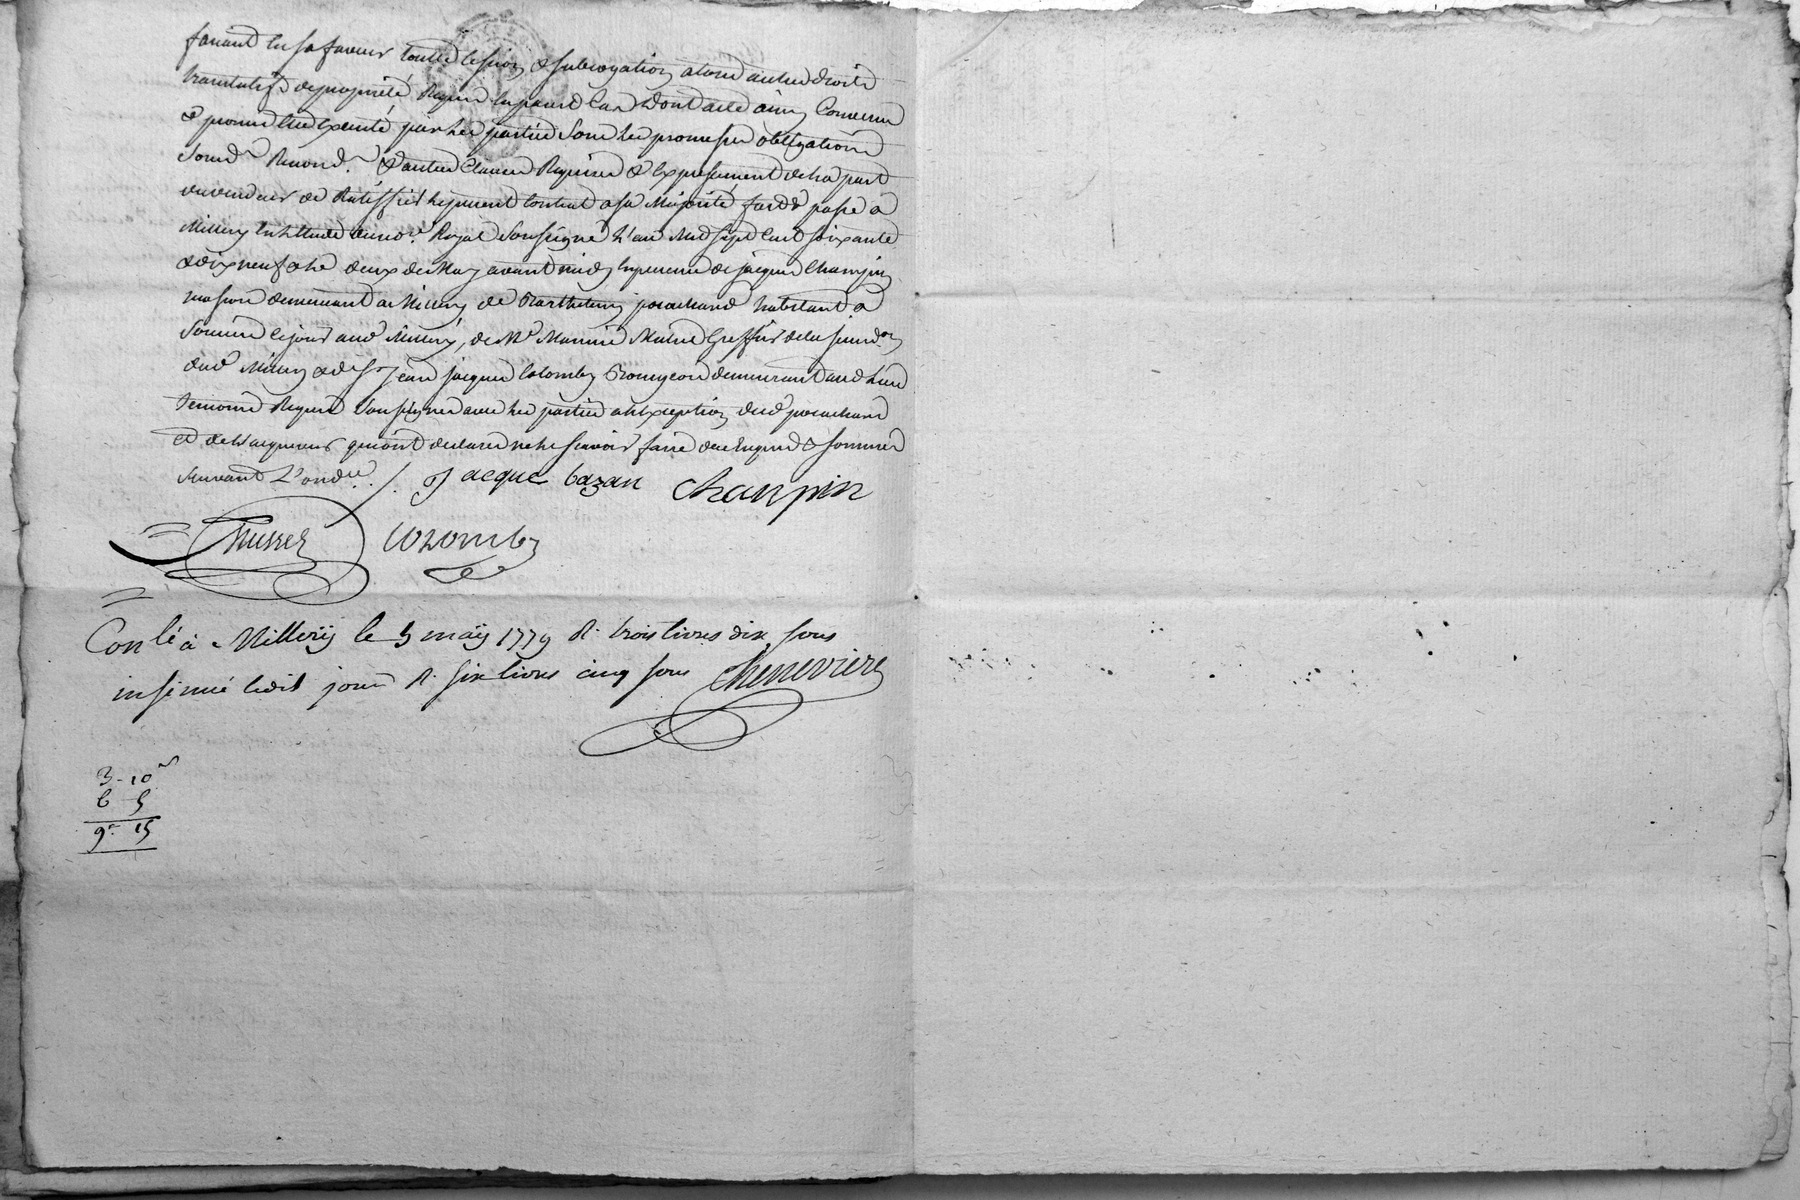 faisant en sa faveur toutte cession & subrogation a tous autres droits
translatifs de propriété Requis en pareil cas Dont acte ainsy Convenu
& promis etre Executé par les parties sous les promesses obligations
soumd Renond & autres Clauses Requises & Expressement de la part
du vendeur de Ratiffier le present contrat a sa Majorité fait & passé a
Millery En L'Etude du nore Royal soussigné L'an Mil sept Cent soixante
& dix neuf & le deux de May avant midy En presence de jacques Champin
masson demeurant au Millery de Barthelemy habitant a
le jour aud Millery, de Me Greffier de la jurid.on
dud Millery & de Sr jean jacques Colomby demeurant aud Lieu
Temoins Requis soussignés avec les parties a l'Exception dud
et de l'acquereur qui ont declaré ne le scavoir faire de ce Enquis & sommés
suivant L'ondce. /. Jacque bazan Champin
Colomby
Conlé à Millerÿ le 5 maÿ 1779 R. trois livres dix sous
insinué ledit jour R. six livres cinq sous Cheneviere
3 - 10 s
6 5
9 15